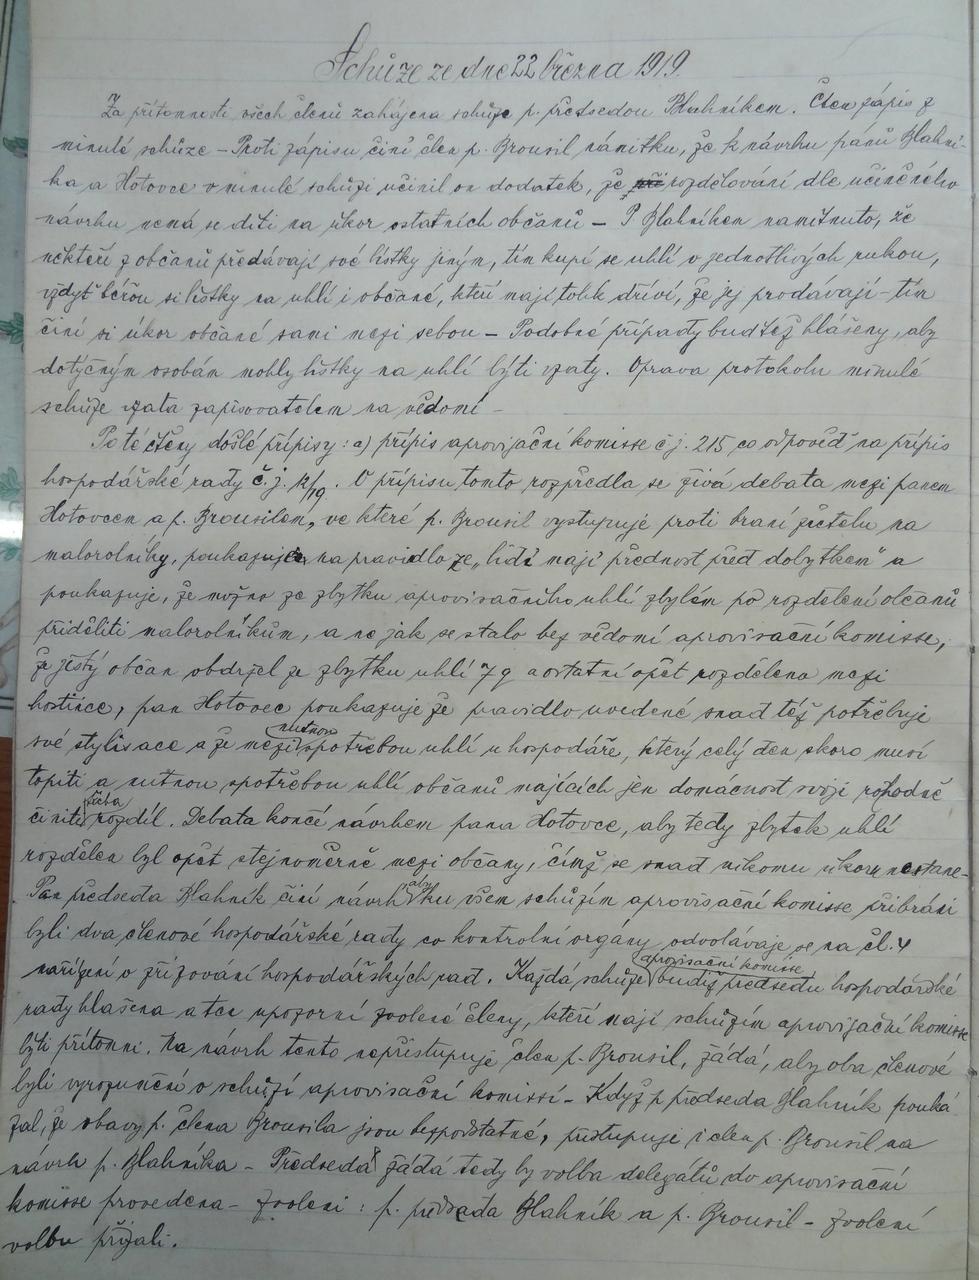 Schůze ze dne 22 března 1919.
Za přítomnosti všech členů zahájena schůze p. předsedou Blahníkem. Čten zápis z
minulé schůze – Proti zápisu činí člen p. Brousil námitku, že k návrhu pánů Blahní-
ka a Hotovce v minulé schůzi učinil on dodatek, že rozdělování dle učiněného
návrhu nemá se díti na úkor ostatních občanů – P Blahníkem namítnuto, že
někteří z občanů předávají své lístky jiným, tím kupí se uhlí v jednotlivých rukou,
vždyť berou si lístky na uhlí i občané, kteří mají tolik dříví, že jej prodávají – tím
činí si úkor občané sami mezi sebou – Podobné případy buďtež hlášeny, aby
dotyčným osobám mohly lístky na uhlí býti vzaty. Oprava protokolu minulé
schůze vzata zapisovatelem na vědomí –
Po té čteny došlé přípisy: a) přípis aprovisační komisse č.j. 215 co odpověď na přípis
hospodářské rady č.j. 12/19. O přípisu tomto rozpředla se živá debata mezi panem
Hotovcem a p. Brousilem, ve které p. Brousil vystupuje proti braní zřetelu na
malorolníky, poukazuje na pravidlo že „lidi mají přednost před dobytkem" a
poukazuje, že možno ze zbytku aprovisačního uhlí zbylém po rozdělení občanů
přiděliti malorolníkům, a ne jak se stalo bez vědomí aprovisační komisse,
že jistý občan obdržel ze zbytku uhlí 7 q a ostatní opět rozděleno mezi
hostince, pan Hotovec poukazuje že pravidlo uvedené snad též potřebuje
své stylisace a že mezi nutnou spotřebou uhlí u hospodáře, který celý den skoro musí
topiti a nutnou spotřebou uhlí občanů majících jen domácnost svoji rozhodně
činiti třeba rozdíl. Debata končí návrhem pana Hotovce, aby tedy zbytek uhlí
rozdělen byl opět stejnoměrně mezi občany, čímž se snad nikomu úkor nestane –
Pan předseda Blahník činí návrh aby ku všem schůzím aprovisační komisse přibráni
byli dva členové hospodářské rady co kontrolní orgány odvolávaje se na čl. 4
nařízení o zřizování hospodářských rad. Každá schůze aprovisační komisse budiž předsedu hospodářské
rady hlášena a ten upozorní zvolené členy, kteří mají schůzím aprovisační komisse
býti přítomni. Na návrh tento nepřistupuje člen p. Brousil, žádá, aby oba členové
byli vyrozuměni o schůzi aprovisační komissí – Když p předseda Blahník pouká
zal, že obavy p. člena Brousila jsou bezpodstatné, přistupuje i člen p. Brousil na
návrh p. Blahníka – Předseda žádá tedy by volba delegátů do aprovisační
komisse provedena – zvoleni: p. předseda Blahník a p. Brousil – zvolení
volbu přijali.